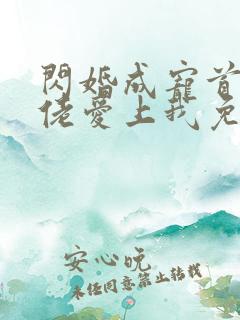 閃婚成寵首
佬愛上我免
安心晚
未經同意禁止轉載